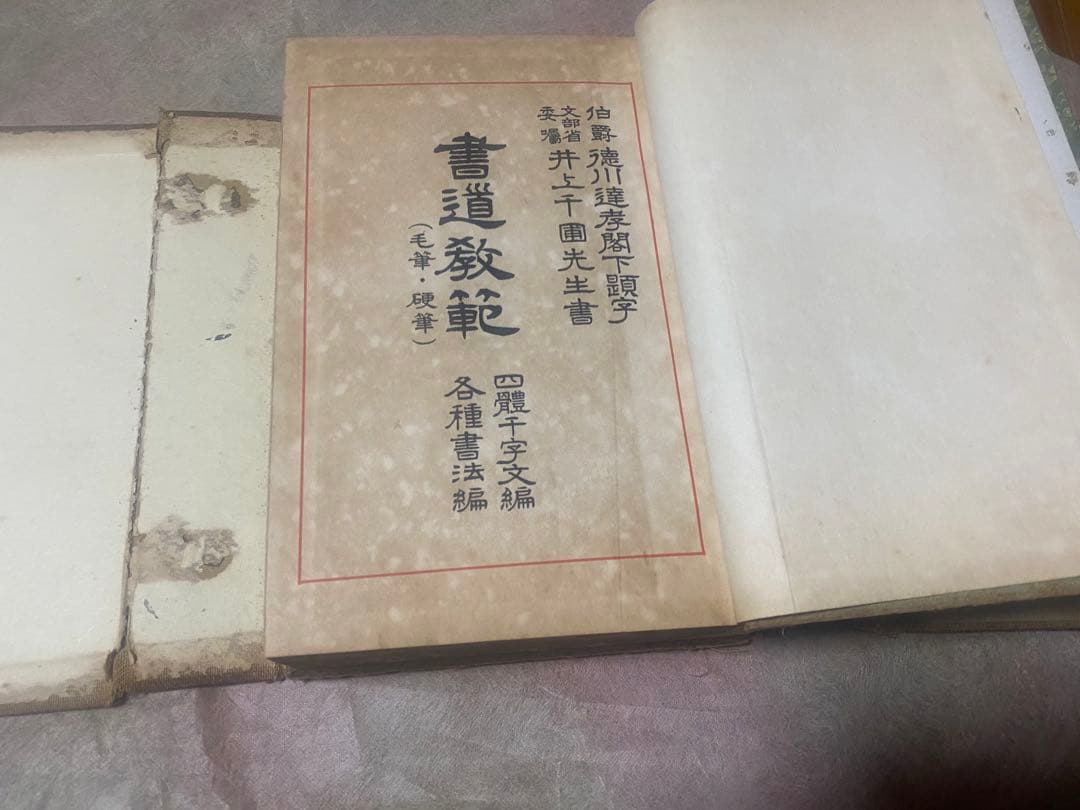 伯爵 德川達孝閣下題字
文部省委囑 井上千圃先生書
書道教範
(毛筆・硬筆)
四體千字文編
各種書法編